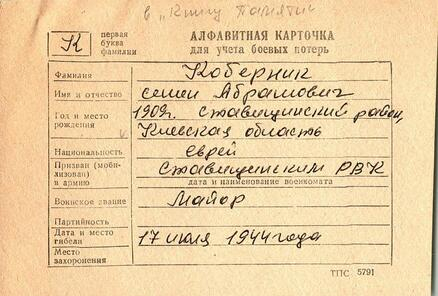 в „Книгу Памяти"
К
первая
буква
фамилии
АЛФАВИТНАЯ КАРТОЧКА
для учета боевых потерь
Фамилия Коберник
Имя и отчество Семен Абрамович
Год и место
рождения 1909г. Ставищинский район,
Киевская область
Национальность Еврей
Призван (моби-
лизован)
в армию Ставищинским РВК
дата и наименование военкомата
Воинское звание Майор
Партийность
Дата и место
гибели 17 июля 1944 года
Место
захоронения
ТПС 5791